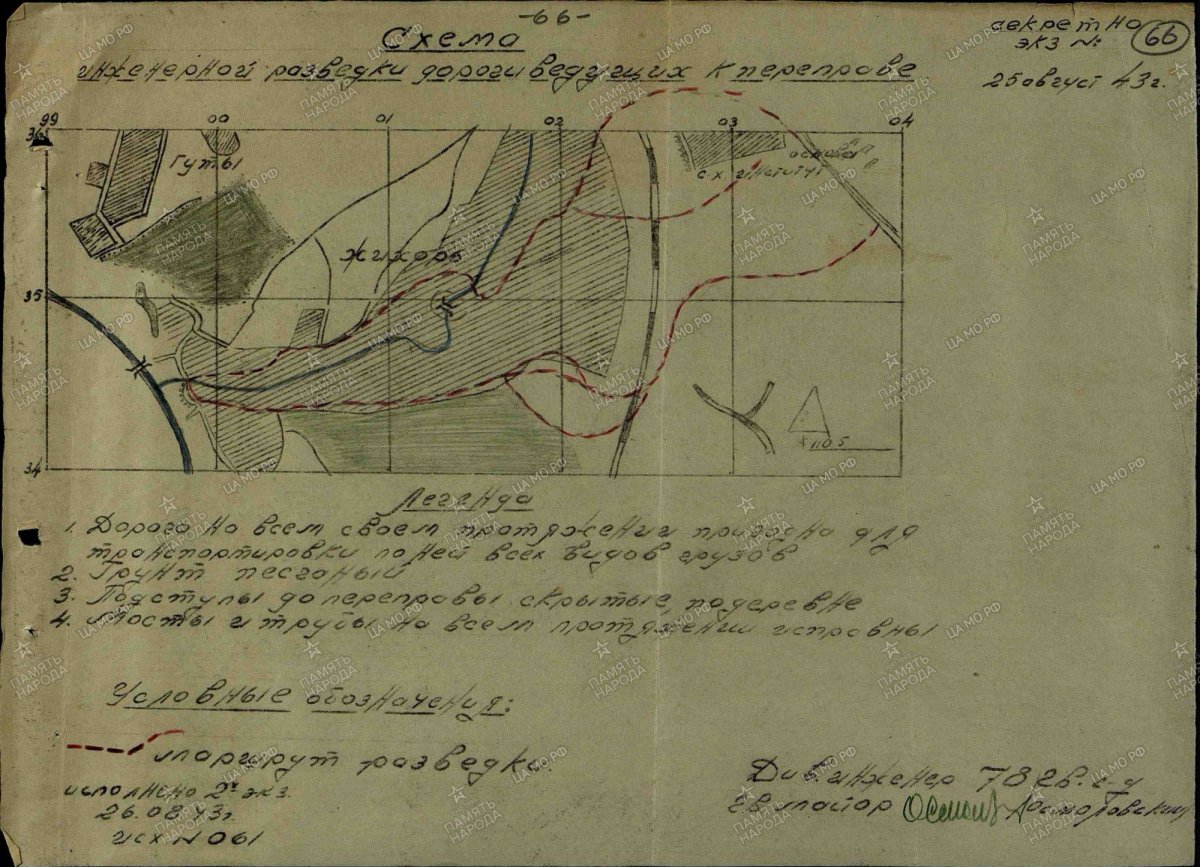 -66-
секретно
экз №:
66
Схема
инженерной разведки дороги ведущих к переправе
25 август 43г.
99 00 01 02 03 04
36
Гуты
с х институт
Жихорь
35
110.5
34
Легенда
1. Дорога на всем своем протяжении пригодна для
транспортировки по ней всех видов грузов
2. Грунт песчаный
3. Подступы до переправы скрытые, по деревне
4. Мосты и трубы на всем протяжении исправны
Условные обозначения:
маршрут разведки.
исполнено 2 экз.
26.08.43г.
исх №061
Див. инженер 78 гв. с-д
Гв майор
ПАМЯТЬ НАРОДА
ЦА МО РФ